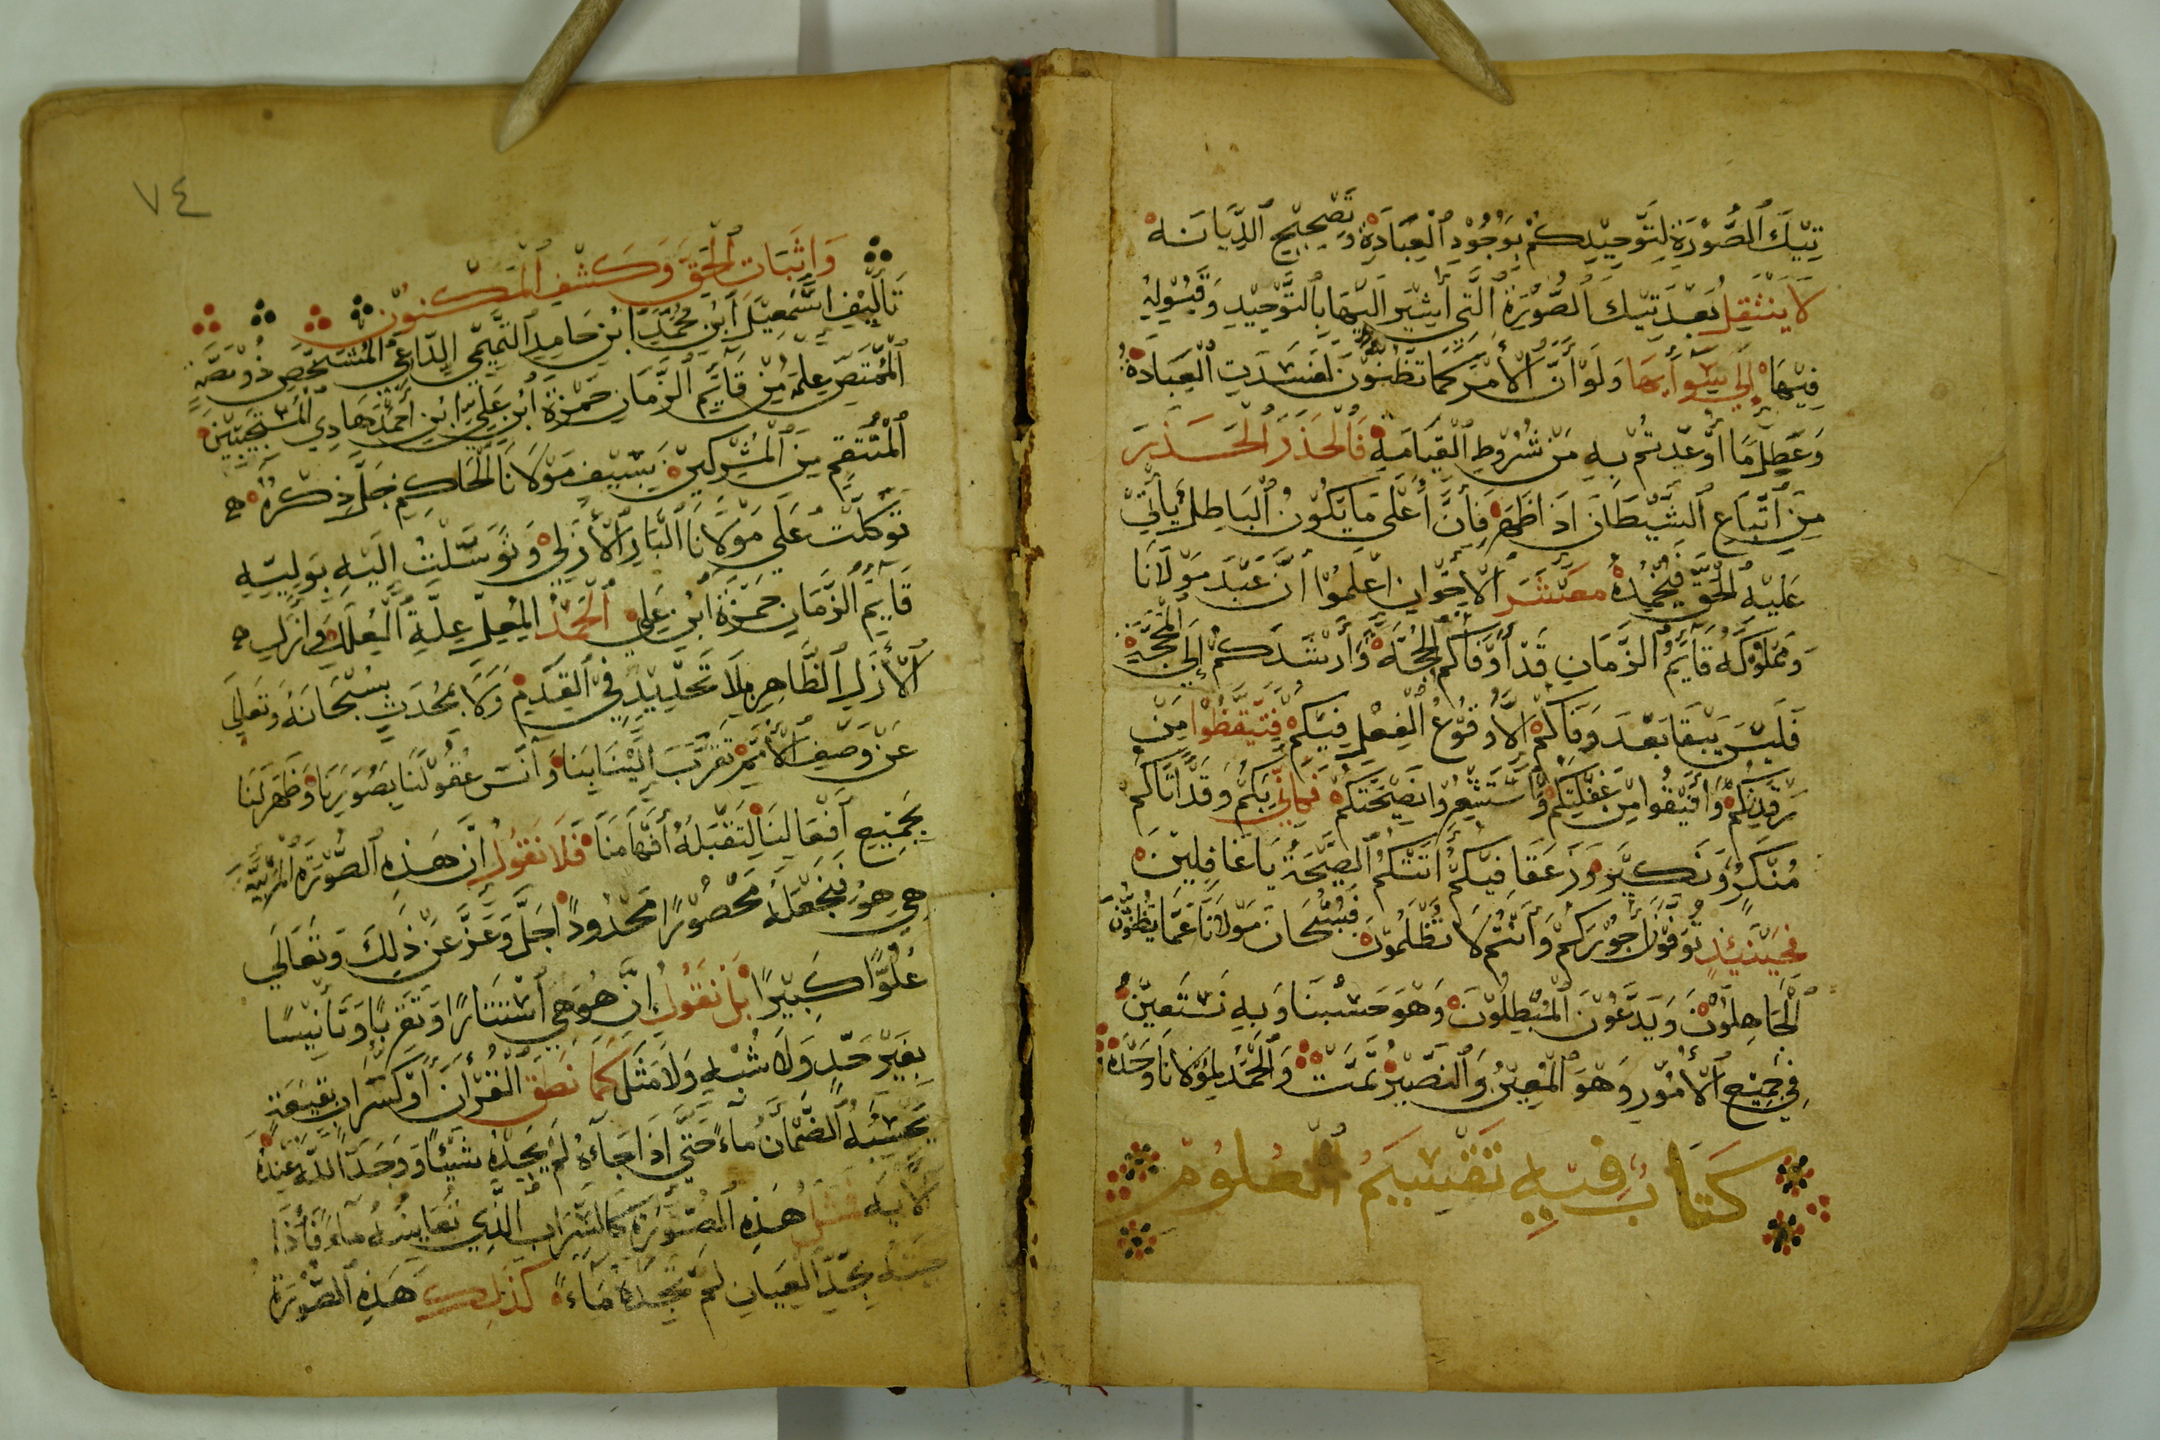 تِيْكَ الصُّوْرَةِ لِتَوْحِيْدِكُمْ بِوُجُوْدِ الْعِبَادَةِ وَتَصْحِيْحِ الدِّيَانَه
لَا يَنْتَقِلُ بَعْدَ تِيْكَ الصُّوْرَةِ الَّتِي أُشِيْرَ اِلَيْهَا بِالتَّوْحِيْدِ وَقِيْوْلِهُ
فِيْهَا إِلَى سِوَاءِهَا وَلَوْ اَنَّ الْأَمْرَ كَمَا تَظُنُّوْنَ لَفَسَدَتِ الْعِبَادَةُ
وَعُطِلَ مَا اُوْعِدْتُمْ بِهِ مِنْ شُرُوْطِ الْقِيَامَةِ فَالْحَذَرَ الْحَذَرَ
مِنْ اِتِّبَاعِ الشَّيْطَانِ اِذَا ظَهَرَ فَإِنَّ أَعْلَى مَا يَكُوْنُ الْبَاطِلُ يَأْتِيْ
عَلَيْهِ الْحَقُّ فَيُخْمِدُهُ مَعْشَرَ الْأِخْوَانِ اِعْلَمُوْا اَنَّ عَبْدَ مَوْلَانَا
وَمَمْلُوْكَهُ قَايِمُ الزَّمَانِ قَدْ أَوْفَاكُمُ الْحُجَّةَ وَأَرْشَدَكُمْ إِلَى الْمَحَجَّةِ
فَلَيْسَ يَبْقَا بَعْدَ وَفَاكُمْ اِلَّا وُقُوْعُ الْفِعْلِ فِيْكُمْ فَتَيَقَّظُوْا مِنْ
رَقْدَتِكُمْ وَأَفِيْقُوا مِنْ غَفْلَتِكُمْ وَاسْتَشْعِرُوْا نَصِيْحَتَكُمْ فَكَأَنِّي بِكُمْ وَقَدْ اَتَاكُمْ
مُنْكَرٌ وَنَكِيْرٌ وَزَعَقَا فِيْكُمْ أَتَتْكُمُ الصَّيْحَةُ يَا غَافِلِيْنَ
فَحِيْنَيِذٍ تُوَفَّوْنَ أُجُوْرَكُمْ وَأَنْتُمْ لَا تُظْلَمُوْنَ فَسُبْحَانَ مَوْلَانَا عَمَّا يَظُنُّوْنَ
الْجَاهِلُوْنَ وَيَدَّعُوْنَ الْمُبْطِلُوْنَ وَهُوَ حَسْبُنَا وَبِهِ نَسْتَعِيْنُ
فِي جَمِيْعِ الْأُمُوْرِ وَهُوَ الْمُعِيْنُ وَالنَّصِيْرُ تَمَّتْ وَالْحَمْدُ لِمَوْلَانَا وَحْدَهُ
كِتَابُ فِيهِ تَقْسِيْمُ الْعُلُوْمِ
٧٤
وَاِثْبَاتِ الْحَقِّ وَكَشْفِ الْمَكْنُوْنِ
تَأْلِيْفُ اِسْمَعِيْلَ اَبْنِ مُحَمَّدِ اَبْنِ حَامِدِ التَّمِيْمِي الدَّاعِيْ الْمُسْتَخْلَصِ ذُو مَصَّةٍ
الْمُمْتَصِّ عِلْمَهُ مِنْ قَايِمِ الزَّمَانِ حَمْزَةَ اَبْنِ عَلِيِّ ابْنِ أَحْمَدَ هَادِي الْمُسْتَجِيْبِيْنَ
الْمُنْتَقِمِ مِنَ الْمُشْرِكِيْنَ بِسَيْفِ مَوْلَانَا الْحَاكِمِ جَلَّ ذِكْرُهُ
تَوَكَّلْتُ عَلَى مَوْلَانَا الْبَارِ الْأَزَلِيِّ وَتَوَسَّلْتُ اِلَيْهِ بِوَلِيِّهِ
قَايِمِ الزَّمَانِ حَمْزَةَ اَبْنِ عَلِي الْحَمْدُ الْمُعِلِّ عِلَّةِ الْعِلَلِ وَأَزَلِ
الْأَزَلِ الظَّاهِرِ بِلَا تَحْدِيْدٍ فِيْ الْقِدَمِ وَلَا بِمُحْدَثٍ سُبْحَانَهُ وَتَعَلَى
عَنْ وَصْفِ الْأُمَمِ تَقَرَّبَ اِلَيْنَا بِنَا وَآنَسَ عُقُوْلَنَا بِصُوَرِنَا وَظَهَرَ لَنَا
بِجَمِيْعِ اَفْعَالِنَا لِتَقْبَلَهُ أَفْهَامَنَا فَلَا نَقُوْلُ اِنَّ هَذِهِ الصُّوْرَةَ الْمَرْئِيَّةَ
هِيَ هُوَ فَنَجْعَلُهُ مَحْصُوْرًا مَحْدُوْدًا جَلَّ وَعَزَّ عَنْ ذَلِكَ وَتَعَالَى
عُلُوًّا كَبِيْرًا بَلْ نَقُوْلُ اِنَّ هُوَ هِيَ اسْتِتَارًا وَتَقَرُّبًا وَتَأْنِيْسًا
بِغَيْرِ حَدٍّ وَلَا شُبْهٍ وَلَا مَثَلٍ كَمَا نَطَقَ الْقُرْآنُ أَوْ كَسَرَابٍ بِقِيْعَةٍ
يَحْسَبُهُ الضَّمْآنُ مَاءً حَتَّى اِذَا جَاءَهُ لَمْ يَجِدْهُ شَيْئًا وَوَجَدَ اللّٰهَ عِنْدَهُ
الْآيَه فَمَثَلُ هَذِهِ الصُّوْرَةِ كَالسَّرَابِ الَّذِي تُعَايِنُهُ مَاءً فَأِذَا
جِئْتَهُ بِحَدِّ الْعِيَانِ لَمْ تَجِدْهُ مَاءً كَذَلِكَ هَذِهِ الصُّوْرَةُ